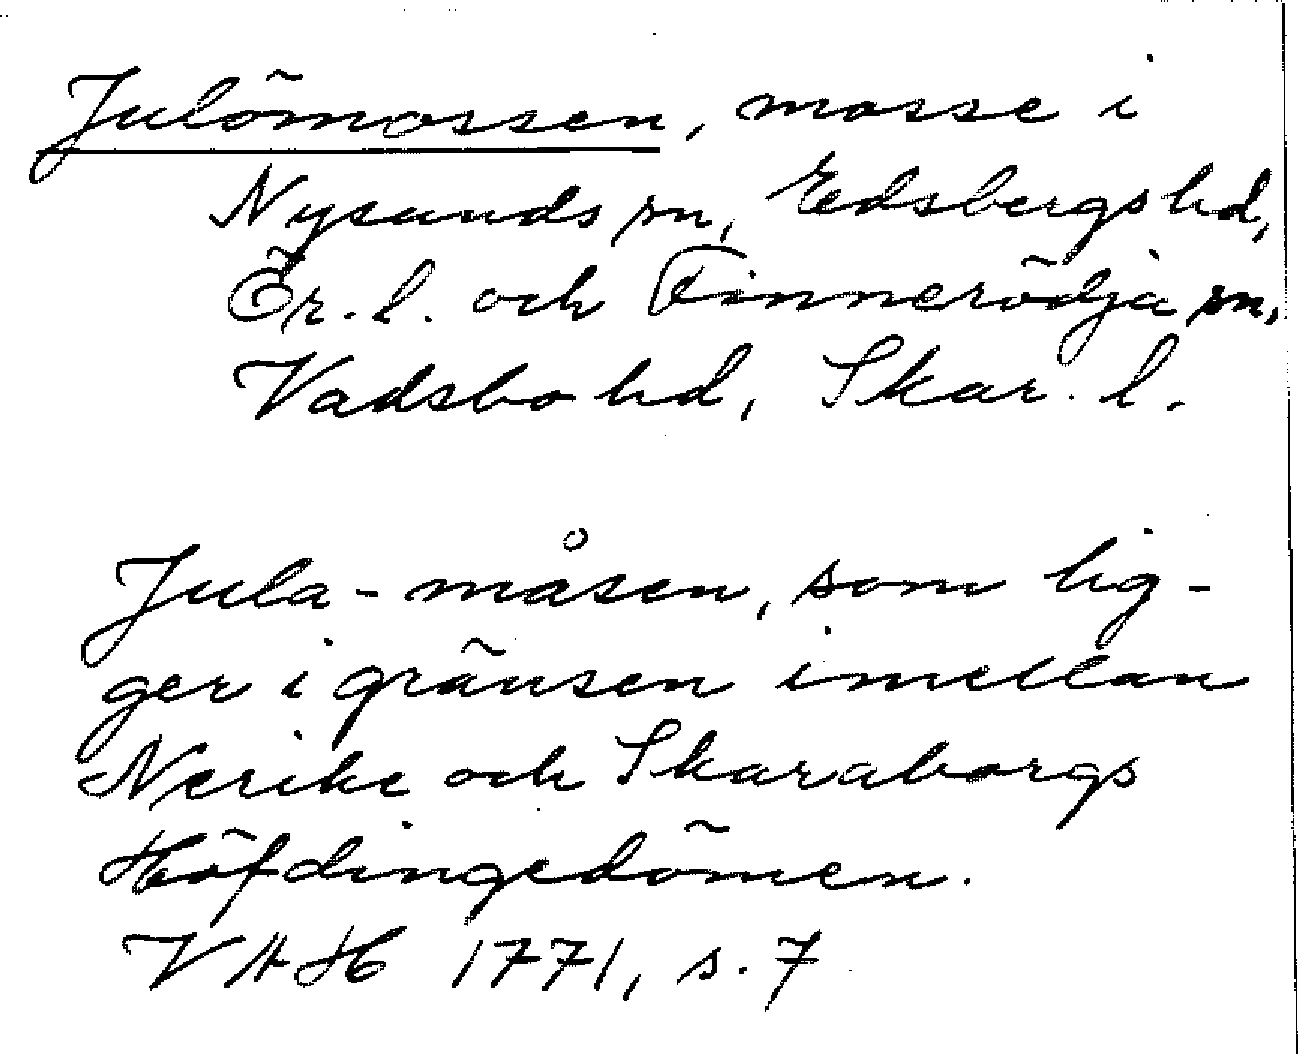 Julömossen, mosse i
Nysunds sn, Edsbergs hd,
Ör. l. och Finnerödja sn,
Vadsbo hd, Skar. l.
Jula-måsen, som lig-
ger i gränsen imellan
Nerike och Skaraborgs
Höfdingedömen.
VAH 1771, s. 7